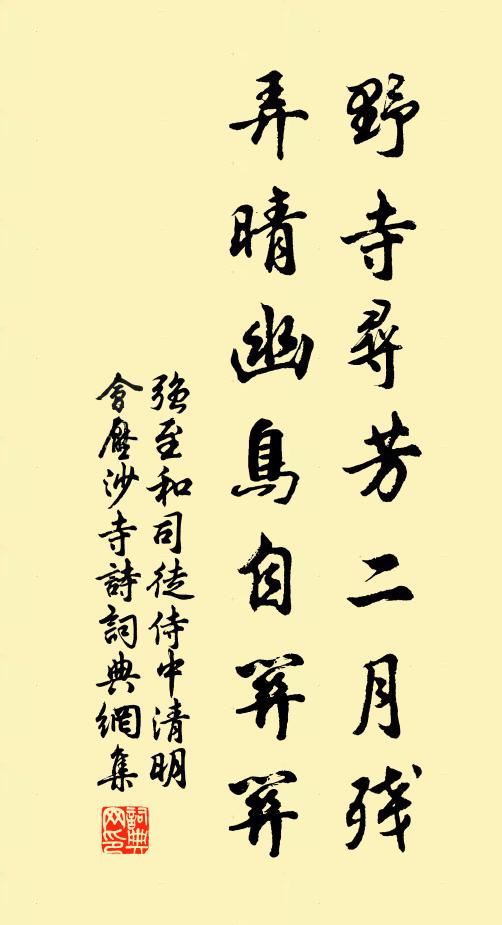 野寺尋芳二月残
弄晴幽鳥自關關
強至和司徒侍中清明
會壓沙寺詩詞典網集
詞典
网印